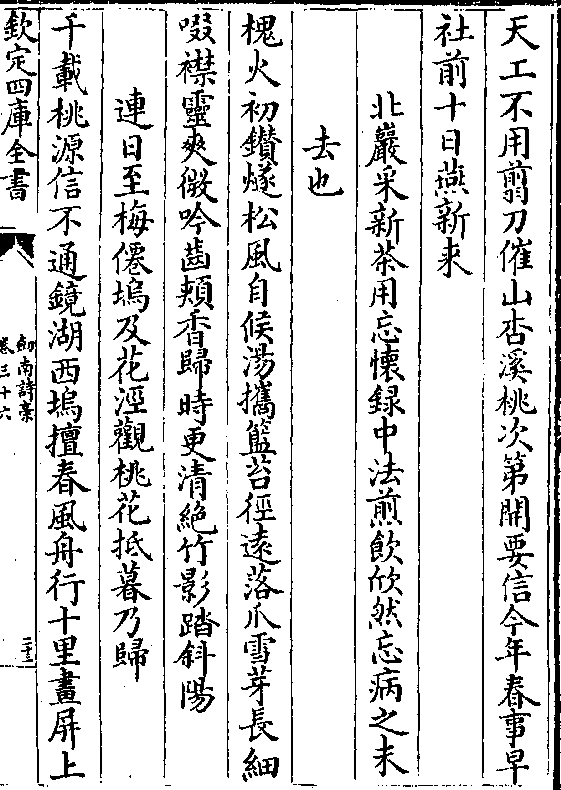 天工不用翦刀催山杏溪桃次第開要信今年春事早
社前十日燕新来
北巖采新茶用忘懐録中法煎飲欣然忘病之未
去也
槐火初鑚燧松風自候湯攜籃苔徑逺落爪雪芽長細
啜襟靈爽微吟齒頰香歸時更清絶竹影踏斜陽
連日至梅僊塢及花涇觀桃花抵暮乃歸
千載桃源信不通鏡湖西塢擅春風舟行十里畫屏上
欽定四庫全書
劎南詩稾
卷三十六
二十三